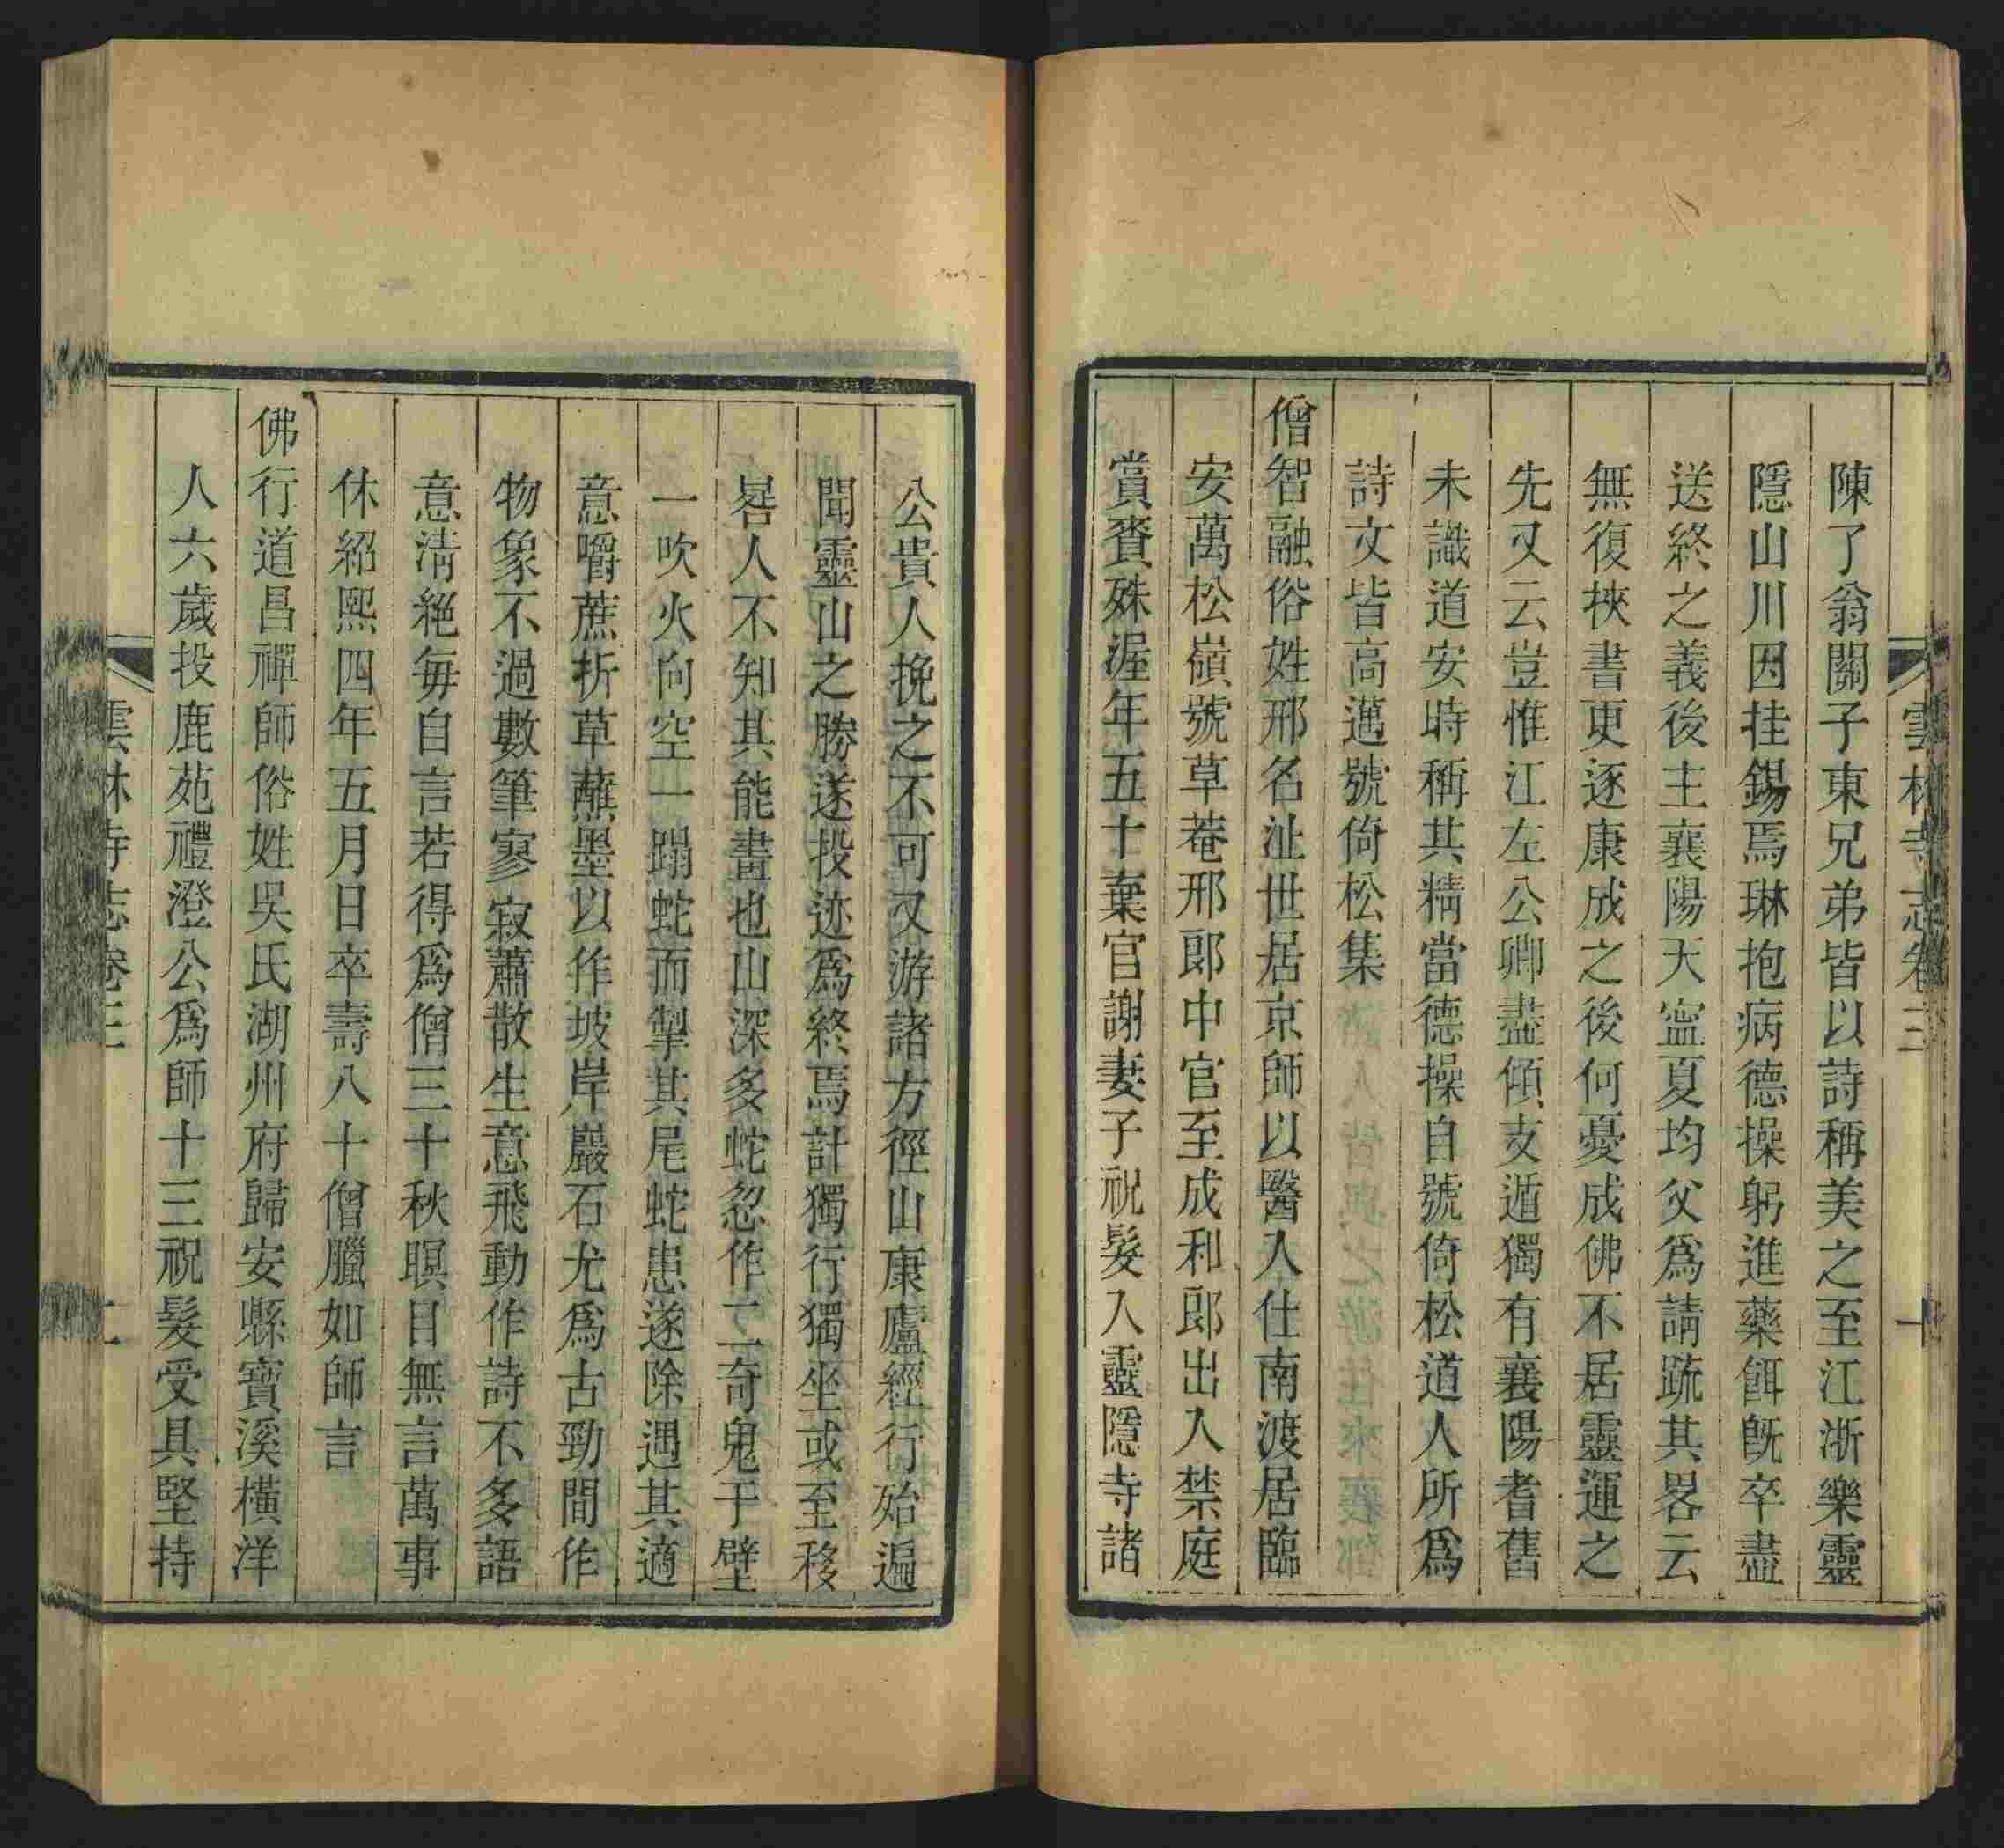 雲林寺志卷三
一
陳了翁關子東兄弟皆以詩稱美之至江浙樂靈
隱山川因挂錫焉琳抱病德操躬進藥餌旣卒盡
送終之義後主襄陽天寧夏均父爲請䟽其畧云
無復挾書更逐康成之後何憂成佛不居靈運之
先又云豈惟江左公卿盡傾支遁獨有襄陽耆舊
未識道安時稱其精當德操自號倚松道人所爲
詩文皆高邁號倚松集
僧智融俗姓邢名沚世居京師以醫入仕南渡居臨
安萬松嶺號草菴邢郎中官至成和郎出入禁庭
賞賚殊渥年五十棄官謝妻子祝髮入靈隱寺諸
公貴人挽之不可又游諸方徑山康廬經行殆遍
聞靈山之勝遂投迹爲終焉計獨行獨坐或至移
晷人不知其能畫也山深多蛇忽作二奇鬼于壁
一吹火向空一蹋蛇而掣其尾蛇患遂除遇其適
意嚼蔗折草蘸墨以作坡岸巖石尤爲古勁間作
物象不過數筆寥寂蕭散生意飛動作詩不多語
意淸絕每自言若得爲僧三十秋瞑目無言萬事
休紹熙四年五月日卒壽八十僧臘如師言
佛行道昌禪師俗姓吳氏湖州府歸安縣寶溪橫洋
人六歲投鹿苑禮澄公爲師十三祝髮受具堅持
雲林寺志卷三
二